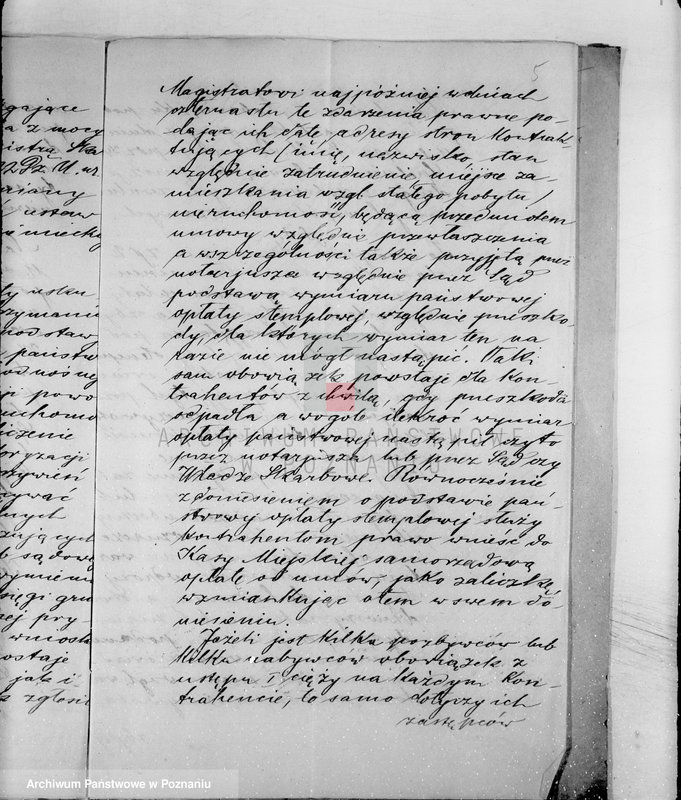 5
Magistratowi najpóźniej w dniach
czternastu te zdarzenia prawne po-
dając ich datę adresy stron kontrak-
tujących /imię, nazwisko, stan
względnie zatrudnienie, miejsce za-
mieszkania wzgl. stałego pobytu/
nieruchomość, będącą przedmiotem
umowy względnie przewłaszczenia
a w szczególności także przyjętą przez
notarjusza względnie przez Sąd
podstawę wymiaru państwowej
opłaty stemplowej względnie przeszko-
dy, dla których wymiar ten na
razie nie mógł nastąpić. Taki
sam obowiązek powstaje dla kon-
trahentów z chwilą, gdy przeszkoda
odpadła a wogóle ilekroć wymiar
opłaty państwowej nastąpił czyto
przez notarjusza lub przez Sąd czy
Władze Skarbowe. Równocześnie
z doniesieniem o podstawie pań-
stwowej opłaty stemplowej służy
kontrahentom prawo wnieść do
Kasy Miejskiej samorządową
opłatę od umów, jako zaliczkę,
wzmiankując o tem w swem do-
niesieniu.
Jeżeli jest kilku pozbywców lub
kilku nabywców obowiązek z
ustępu I ciąży na każdym kon-
trahencie, to samo dotyczy ich
zastępców
gające
a z mocy
ustaw
niemiecky
zymania
podstaw
państw
odnośnej
powo
ruchomo
czenie
ywać
nych
zujących
sądowe
wymienu
ęgi gru
ej pry-
wniosk
ostaje
jak i
zgłosi
ARCHIWUM PAŃSTWOWE
W POZNANIU
Archiwum Państwowe w Poznaniu